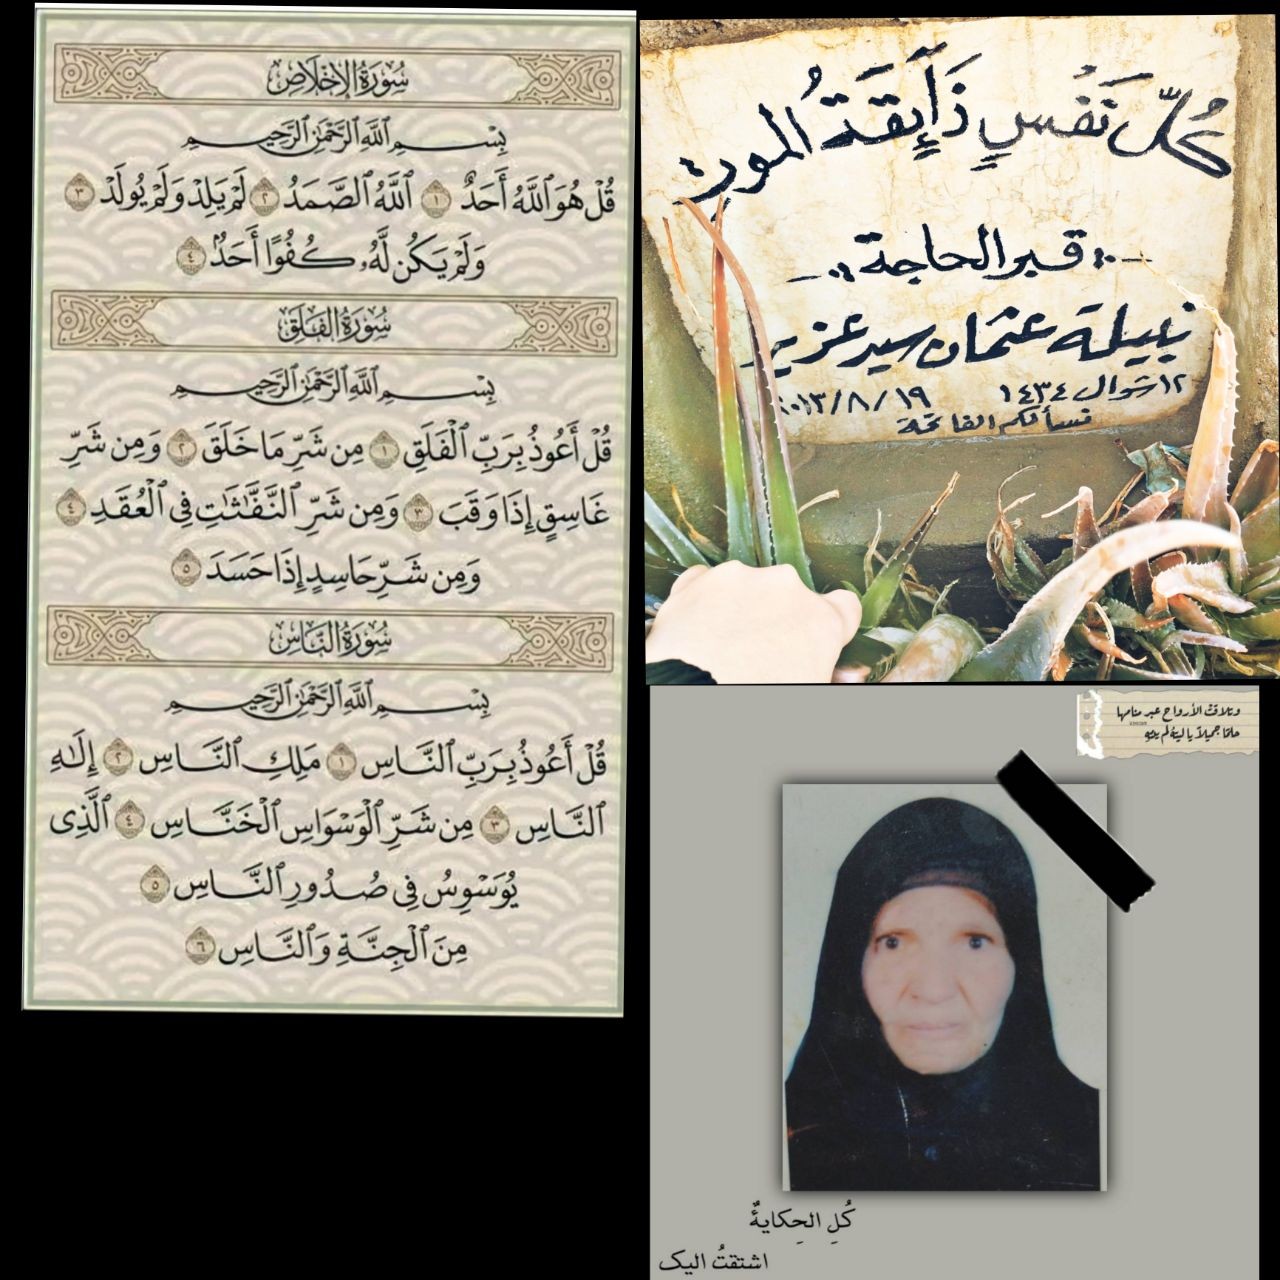 سُورَةُ الإِخْلَاصِ
بِسْمِ ٱللَّهِ ٱلرَّحْمَٰنِ ٱلرَّحِيمِ
قُلْ هُوَ ٱللَّهُ أَحَدٌ ١ ٱللَّهُ ٱلصَّمَدُ ٢ لَمْ يَلِدْ وَلَمْ يُولَدْ ٣
وَلَمْ يَكُن لَّهُۥ كُفُوًا أَحَدٌۢ ٤
سُورَةُ الفَلَقِ
بِسْمِ ٱللَّهِ ٱلرَّحْمَٰنِ ٱلرَّحِيمِ
قُلْ أَعُوذُ بِرَبِّ ٱلْفَلَقِ ١ مِن شَرِّ مَا خَلَقَ ٢ وَمِن شَرِّ
غَاسِقٍ إِذَا وَقَبَ ٣ وَمِن شَرِّ ٱلنَّفَّٰثَٰتِ فِى ٱلْعُقَدِ ٤
وَمِن شَرِّ حَاسِدٍ إِذَا حَسَدَ ٥
سُورَةُ النَّاسِ
بِسْمِ ٱللَّهِ ٱلرَّحْمَٰنِ ٱلرَّحِيمِ
قُلْ أَعُوذُ بِرَبِّ ٱلنَّاسِ ١ مَلِكِ ٱلنَّاسِ ٢ إِلَٰهِ
ٱلنَّاسِ ٣ مِن شَرِّ ٱلْوَسْوَاسِ ٱلْخَنَّاسِ ٤ ٱلَّذِى
يُوَسْوِسُ فِى صُدُورِ ٱلنَّاسِ ٥
مِنَ ٱلْجِنَّةِ وَٱلنَّاسِ ٦
كُلّ نَفْسٍ ذَآئِقَةُ المَوت
قبر الحاجة
نبيلة عثمان سيد عزيز
١٢ شوال ١٤٣٤ ١٩/٨/٢٠١٣
نسألكم الفاتحة
وتلاقت الأرواح عبر منامها
حلمًا جميلاً يا ليتهُ لم ينتهِ
كُلِ الحِكايةٌ
اشتقتُ اليک